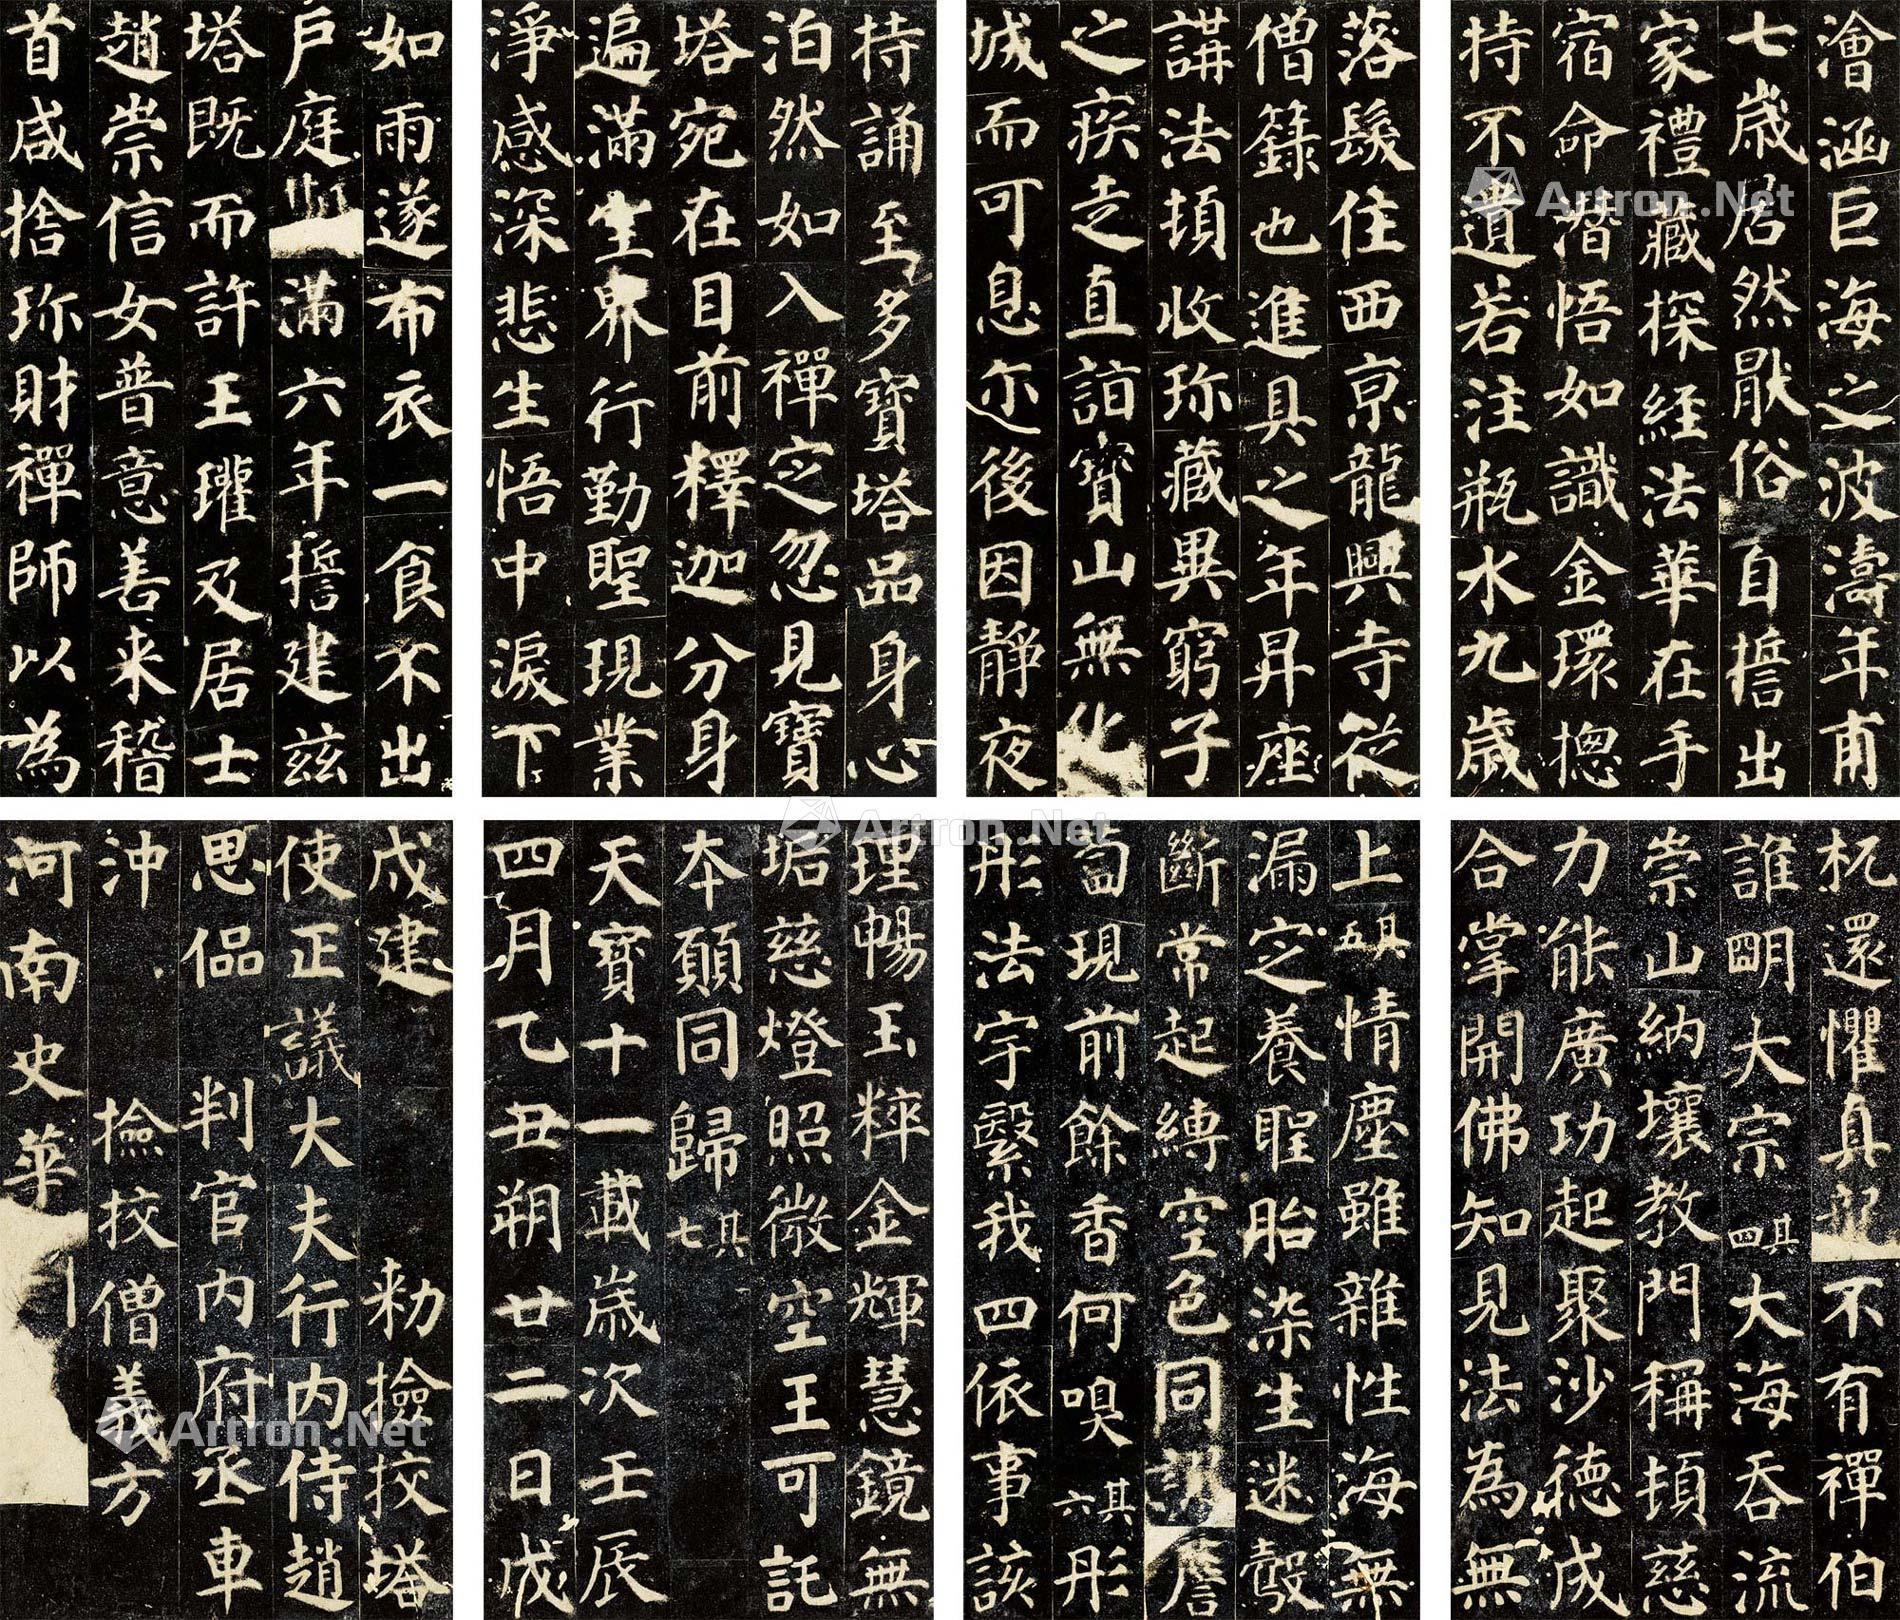 澮涵巨海之波濤年甫
七歲居然厭俗自誓出
家禮藏探經法華在手
宿命潛悟如識金環揔
持不遺若注瓶水九歲
落髮住西京龍興寺從
僧籙也進具之年昇座
講法頓收珎藏異窮子
之疾走直詣寶山無化
城而可息尒後因靜夜
持誦至多寶塔品身心
泊然如入禪定忽見寶
塔宛在目前釋迦分身
遍滿空界行勤聖現業
淨感深悲生悟中淚下
如雨遂布衣一食不出
戶庭滿六年誓建兹
塔既而許王瓘及居士
趙崇信女普意善来稽
首咸捨珎財禪師以為
杌還懼真不有禪伯
誰明大宗其四大海吞流
崇山納壤教門稱頓慈
力能廣功起聚沙德成
合掌開佛知見法為無
上其五情塵雖雜性海無
漏定養聖胎染生迷鷇
斷常起縛空色同謬薝
蔔現前餘香何嗅其六彤
彤法宇繄我四依事該
理暢玉粹金輝慧鏡無
垢慈燈照微空王可託
本願同歸其七
天寶十一載歲次壬辰
四月乙丑朔廿二日戊
戌建 勑撿挍塔
使正議大夫行内侍趙
思偘 判官内府丞車
沖 撿挍僧義方
河南史華
Artron.Net
Artron.Net
Artron.Net